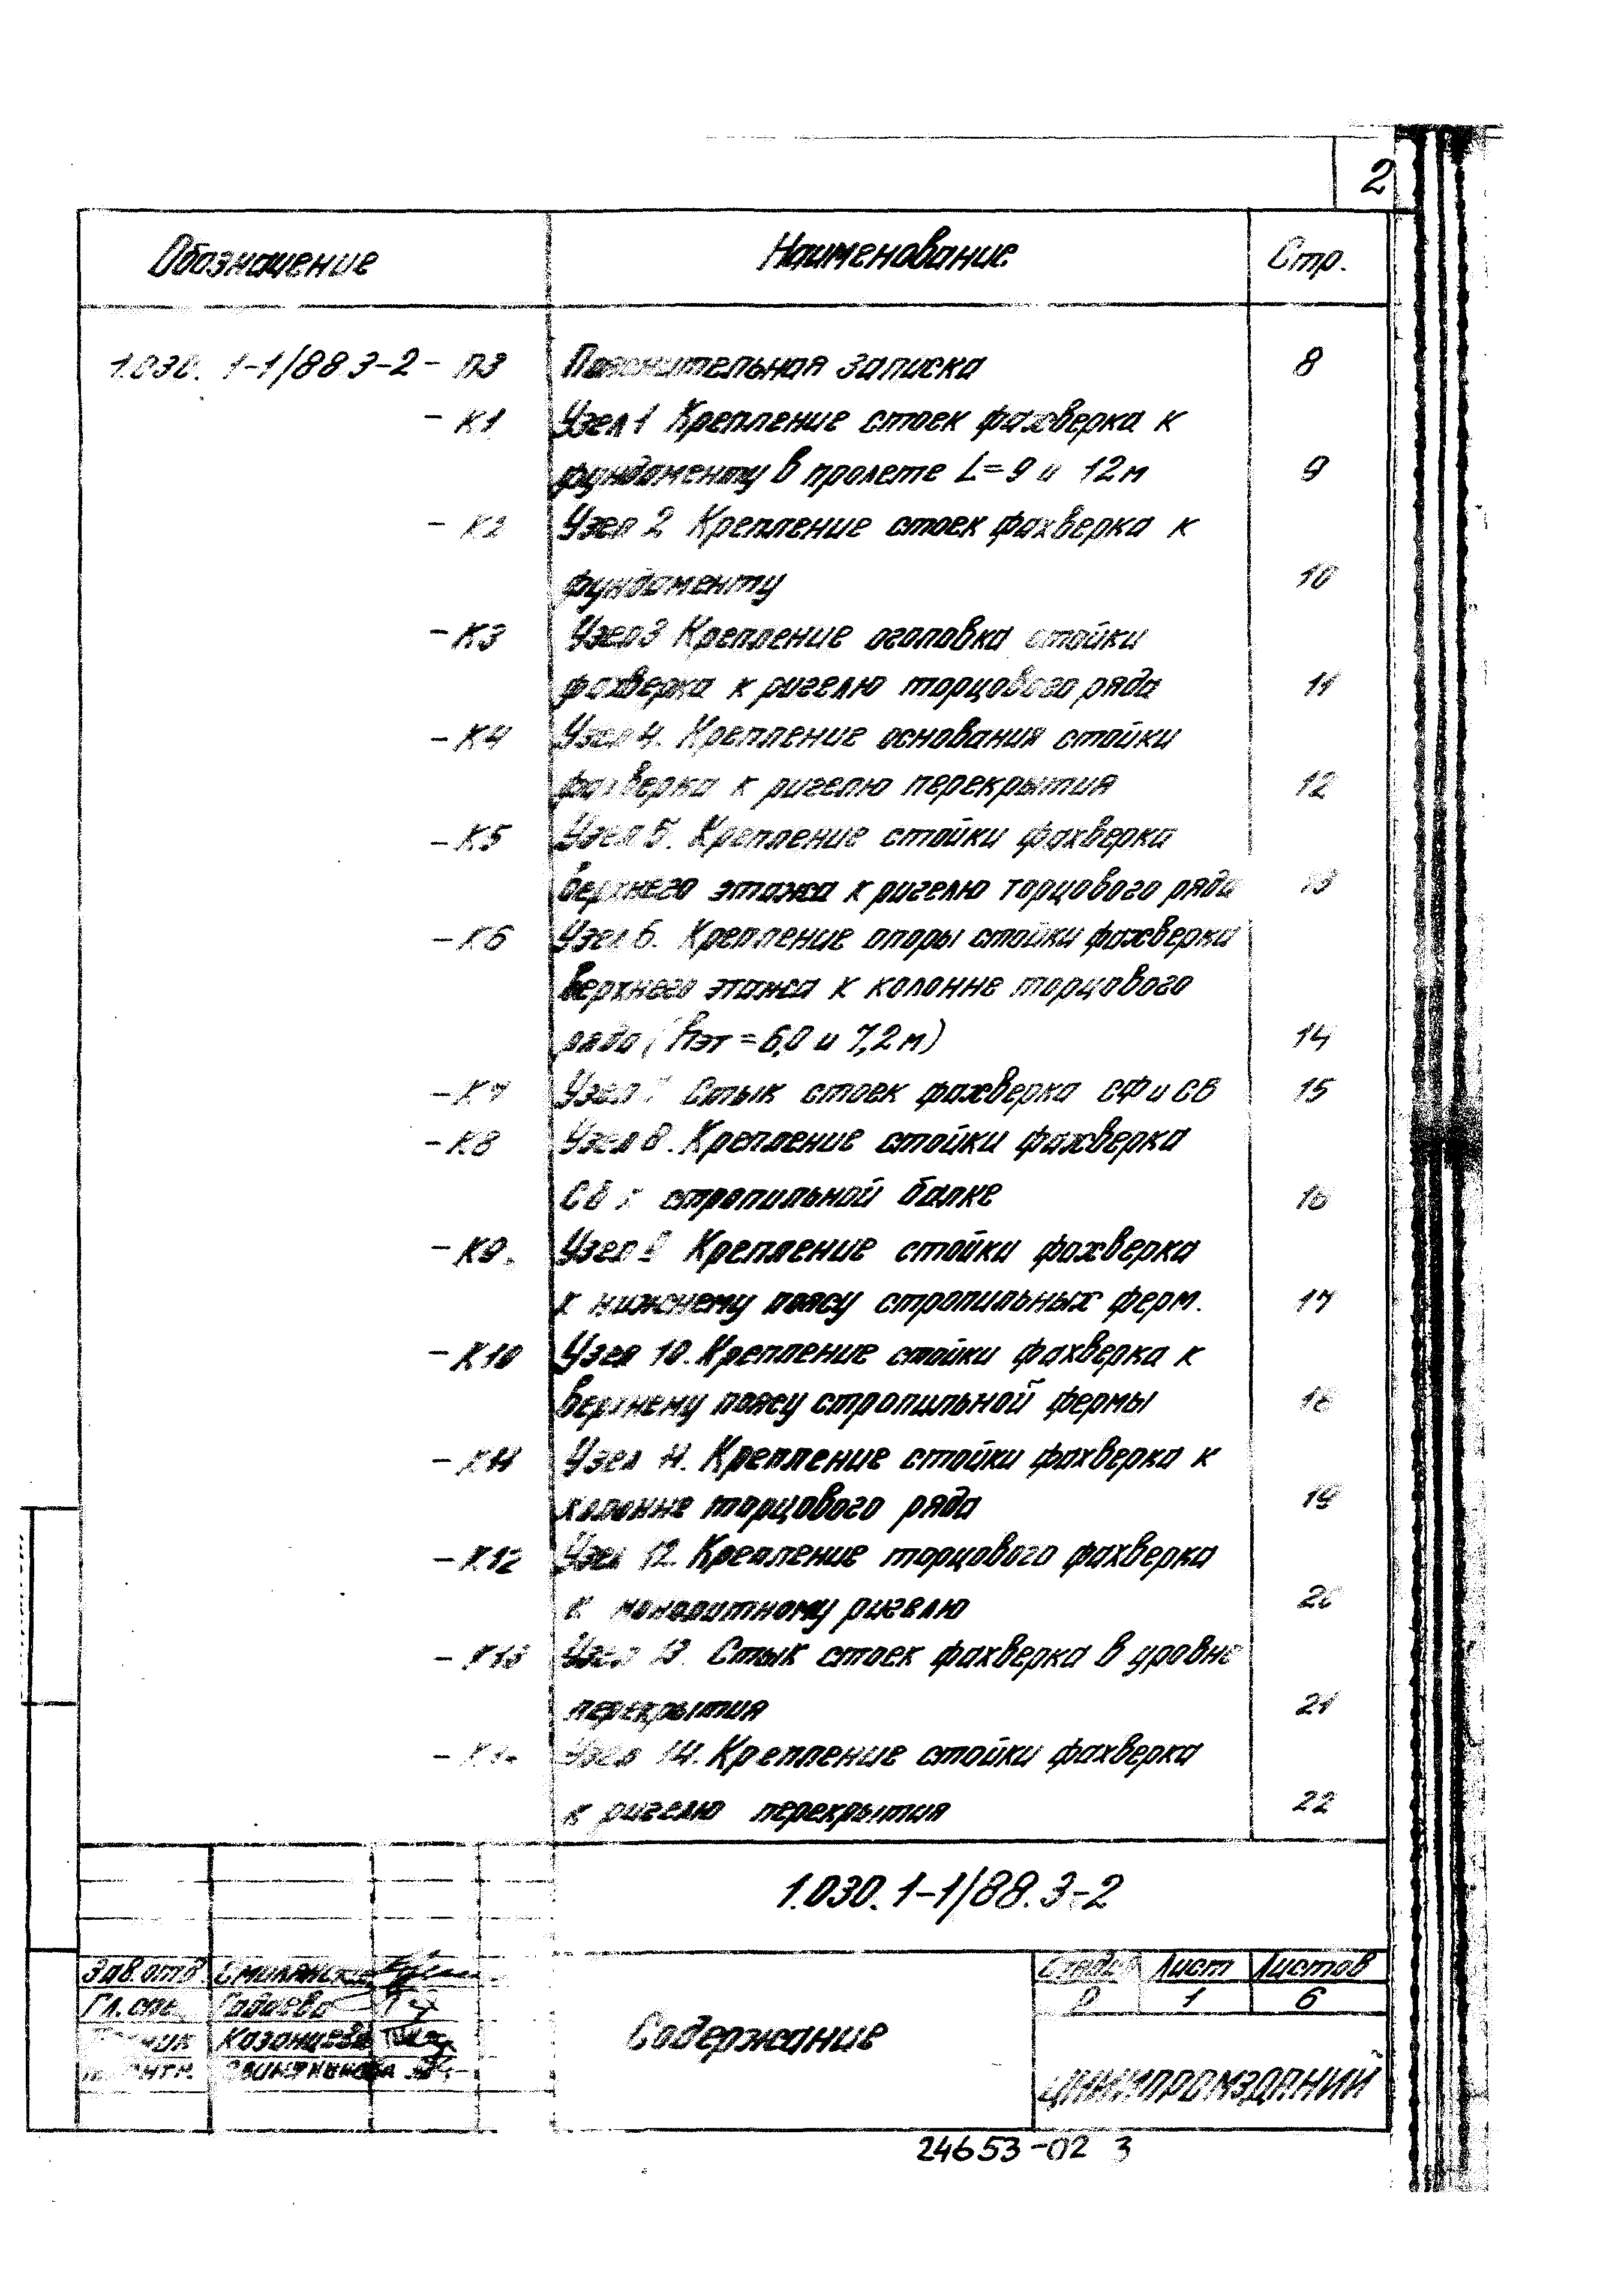 2
Обозначение Наименование Стр.
1.030.1-1/88.3-2- ПЗ Пояснительная записка 8
- К1 Узел 1 Крепление стоек фахверка к
фундаменту в пролете L=9 и 12м 9
- К2 Узел 2 Крепление стоек фахверка к
фундаменту 10
- К3 Узел 3 Крепление оголовка стойки
фахверка к ригелю торцового ряда 11
- К4 Узел 4. Крепление основания стойки
фахверка к ригелю перекрытия 12
- К5 Узел 5. Крепление стойки фахверка
верхнего этажа к ригелю торцового ряда 13
- К6 Узел 6. Крепление опоры стойки фахверка
верхнего этажа к колонне торцового
ряда (hэт = 6,0 и 7,2 м) 14
- К7 Узел 7 Стык стоек фахверка СФ и СВ 15
- К8 Узел 8. Крепление стойки фахверка
к стропильной балке 16
- К9. Узел 9 Крепление стойки фахверка
к нижнему поясу стропильных ферм. 17
- К10 Узел 10. Крепление стойки фахверка к
верхнему поясу стропильной фермы 18
- К11 Узел 11. Крепление стойки фахверка к
колонне торцового ряда 19
- К12 Узел 12. Крепление торцового фахверка
к монолитному ригелю 20
- К13 Узел 13. Стык стоек фахверка в уровне
перекрытия 21
- К14 Узел 14. Крепление стойки фахверка
к ригелю перекрытия 22
1.030.1-1/88.3-2
Зав.отд Смилянский
Гл.спец.
Казанцева
Содержание
Стадия Лист Листов
Р 1 6
ЦНИИПРОМЗДАНИЙ
24653-02 3